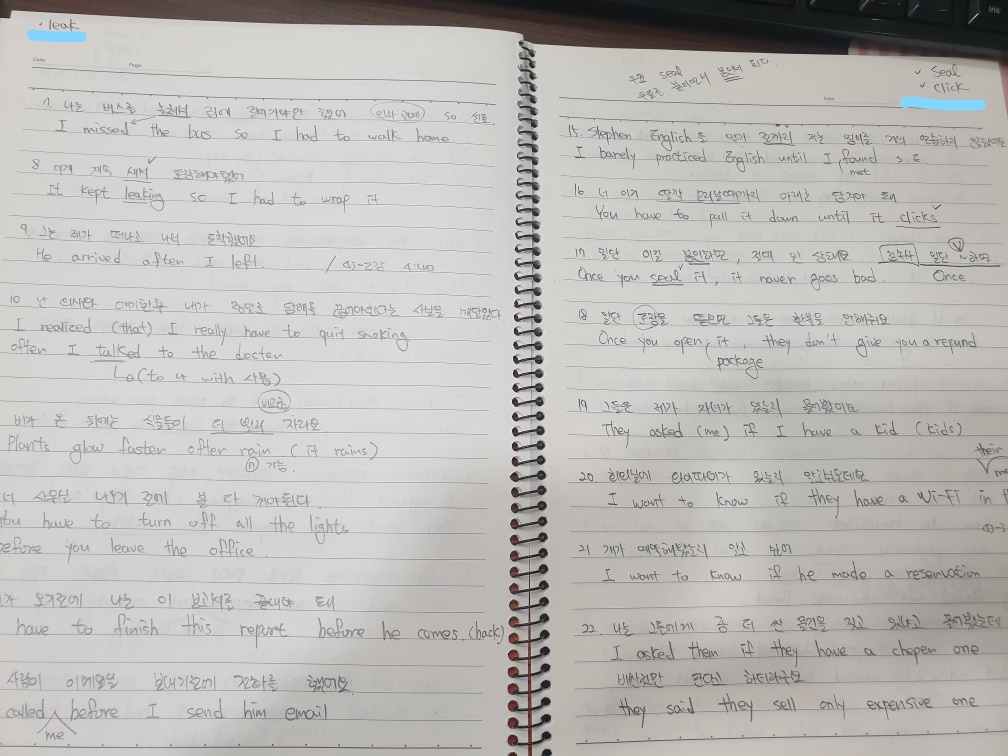 ✓ leak
Date. Page.
7. 나는 버스를 놓쳐서 집에 걸어가야만 했어 so
I missed the bus so I had to walk home
8. 이게 계속 새서
It kept leaking so I had to wrap it
9. 그는 제가 떠나고 나서 도착했어요
He arrived after I left. / 4)-2강 4:40
10 난 의사와 얘기한후 내가 정말로 담배를 끊어야한다는 사실을 깨달았다.
I realized (that) I really have to quit smoking
after I talked to the docter
(to 나 with 사용)
비교급
비가 온 뒤에는 식물들이 더 빨리 자라요
Plants glow faster after rain (it rains)
ⓝ 가능.
너 사무실 나오기 전에 불 다 꺼야된다
You have to turn off all the lights
before you leave the office.
가 오기전에 나는 이 보고서를 끝내야 돼
have to finish this report before he comes. (back)
사람이 이메일을 보내기전에 전화를 했어요
called before I send him email
me
✓ seal
✓ click
seal 붙여야 된다
Date
15. Stephen English를 찾기 전까지 저는 영어를 거의 연습하지 않았어요
I barely practiced English until I found S.E
met
16 너 이거 딸깍 소리날때까지 아래로 당겨야 돼
You have to pull it down until it clicks
17 일단 이걸 봉인하면, 절대 안 상해요 접속사 일단 ~하면
Once you seal it, it never goes bad. Once
18 일단 포장을 뜯으면 그들은 환불을 안해줘요
Once you open it, they don't give you a refund
package
19 그들은 제가 자녀가 있는지 물어봤어요
They asked (me) if I have a kid (kids)
their
20. 회의실에 와이파이가 있는지 알고싶은데요
I want to know if they have a Wi-Fi in
4)-3
21 걔가 예약해놨는지 알고 싶어
I want to know if he made a reservation
22. 나는 그들에게 좀 더 싼 물건을 갖고 있냐고 물어봤는데
I asked them if they have a cheper one
비싼것만 판다고 하더라구요
they said they sell only expensive one